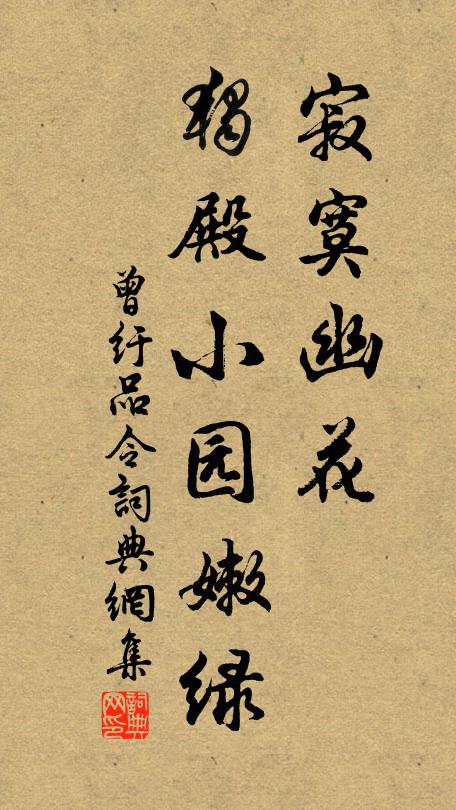 寂寞幽花
獨殿小园嫩绿
曾纡品令詞典網集
詞典網印